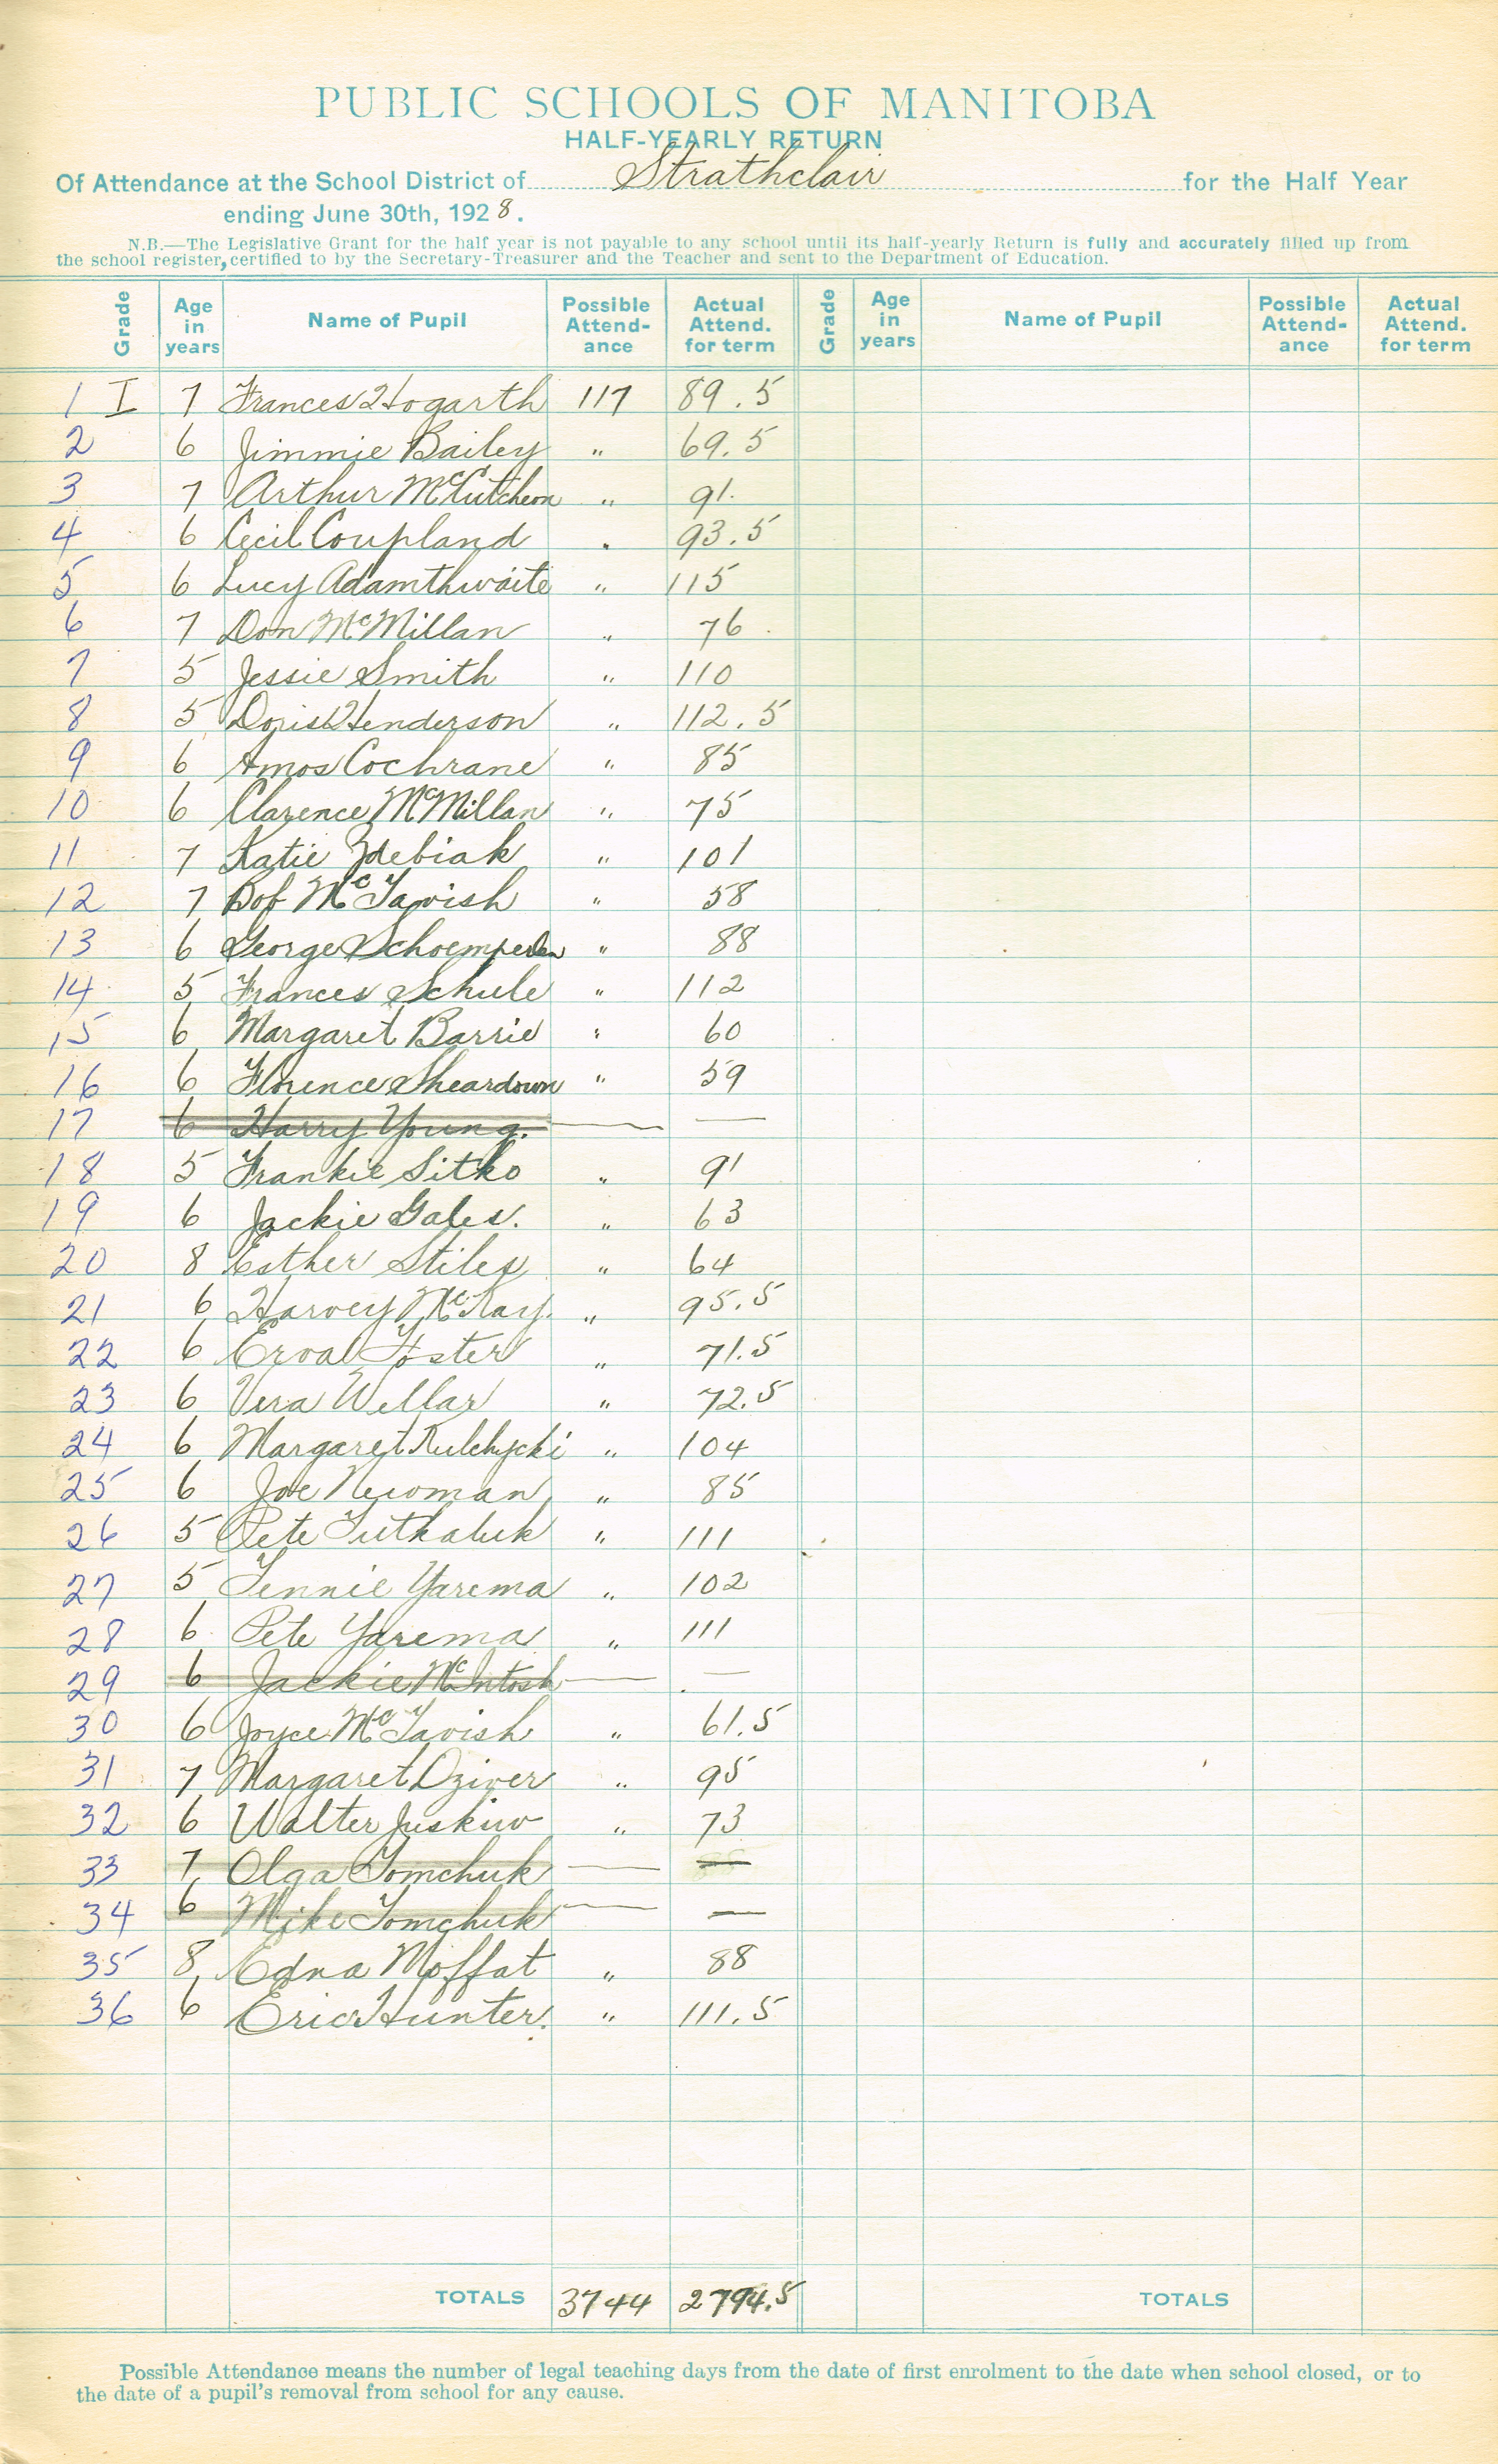 PUBLIC SCHOOLS OF MANITOBA
HALF-YEARLY RETURN
Of Attendance at the School District of Strathclair for the Half Year
ending June 30th, 1928.
N.B.—The Legislative Grant for the half year is not payable to any school until its half-yearly Return is fully and accurately filled up from
the school register, certified to by the Secretary-Treasurer and the Teacher and sent to the Department of Education.
Grade Age in years Name of Pupil Possible Attend-ance Actual Attend. for term Grade Age in years Name of Pupil Possible Attend-ance Actual Attend. for term
1 I 7 Frances Hogarth 117 89.5
2 6 Jimmie Bailey " 69.5
3 7 Arthur McCutcheon " 91.
4 6 Cecil Coupland " 93.5
5 6 Lucy Adamthwaite " 115
6 7 Don McMillan " 76
7 5 Jessie Smith " 110
8 5 Doris Henderson " 112.5
9 6 Amos Cochrane " 85
10 6 Clarence McMillan " 75
11 7 Katie Zdebiak " 101
12 7 Bob McTavish " 58
13 6 George " 88
14 5 Frances Schule " 112
15 6 Margaret Barrie " 60
16 6 Florence Sheardown " 59
17 6 Harry Young. — —
18 5 Frankie Sitko " 91
19 6 Jackie Gales. " 63
20 8 Esther Stiles " 64
21 6 Harvey McKay. " 95.5
22 6 Erval Foster " 71.5
23 6 Vera Wellar " 72.5
24 6 Margaret Kulchycki " 104
25 6 Joe Newman " 85
26 5 Pete Tutkaluk " 111
27 5 Jennie Yarema " 102
28 6 Pete Yarema " 111
29 6 Jackie McIntosh — —
30 6 Joyce McTavish " 61.5
31 7 Margaret Dziver " 95
32 6 Walter Juskiw " 73
33 7 Olga Tomchuk — —
34 6 Mike Tomchuk — —
35 8 Edna Moffat " 88
36 6 Eric Hunter. " 111.5
TOTALS 3744 2794.5 TOTALS
Possible Attendance means the number of legal teaching days from the date of first enrolment to the date when school closed, or to
the date of a pupil's removal from school for any cause.